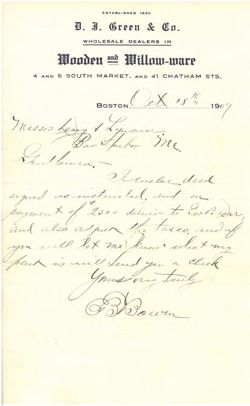 ESTABLISHED 1850
D. J. Green & Co.
WHOLESALE DEALERS IN
Wooden and Willow-ware
4 AND 6 SOUTH MARKET, AND 41 CHATHAM STS.
BOSTON, Oct 18th 1907
Messrs Deasy & Lynam
Bar Harbor Me.
Gentlemen-
I enclose deed
signed as instructed, and on
payment of deliver to
and also adjust the taxes, and if
you will let me know what my
part is will send you a check
Yours very truly
E B Bowen